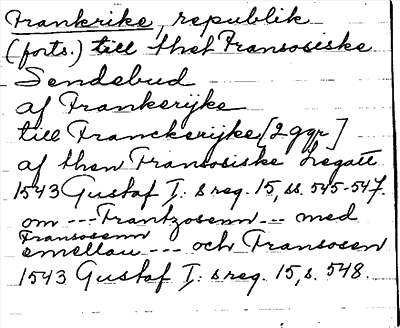 Frankrike, republik
(forts.) till thet Fransosiske
Sendebud
af Frankerijke
till Franckerijke [2 ggr]
af then Fransosiske Legatt
1543 Gustaf I: s reg. 15, ss. 545-547.
om --- Frantzosenn --- med
Fransosenn
emellan --- och Fransosen
1543 Gustaf I: s reg. 15, s. 548.